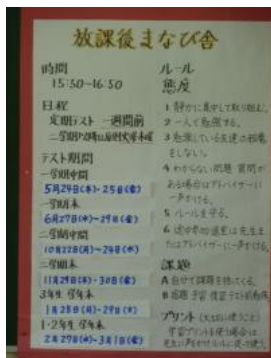 放課後まなび舎
時間
15:50~16:50
日程
定期テスト 一週間前
テスト期間
一学期中間
5月24日(木)・25日(金)
一学期末
6月27日(水)~29日(金)
二学期中間
10月22日(月)~24日(水)
二学期末
11月29日(木)・30日(金)
3年生 学年末
1月28日(月)・29日(火)
1・2年生 学年末
2月27日(水)~3月1日(金)
ルール
態度
1 静かに集中して取り組む。
2 一人で勉強する。
3 勉強している友達の邪魔
をしない。
4 わからない問題、質問が
ある場合はアドバイザーに
声かける。
5 ルールを守る。
6 途中参加・退室は先生ま
たはアドバイザーに声かける。
課題
A 自分で課題を持ってくる。
B 宿題 予習 復習 テスト前勉強
プリント (大切に使うこと)
学習プリントを使う場合は、